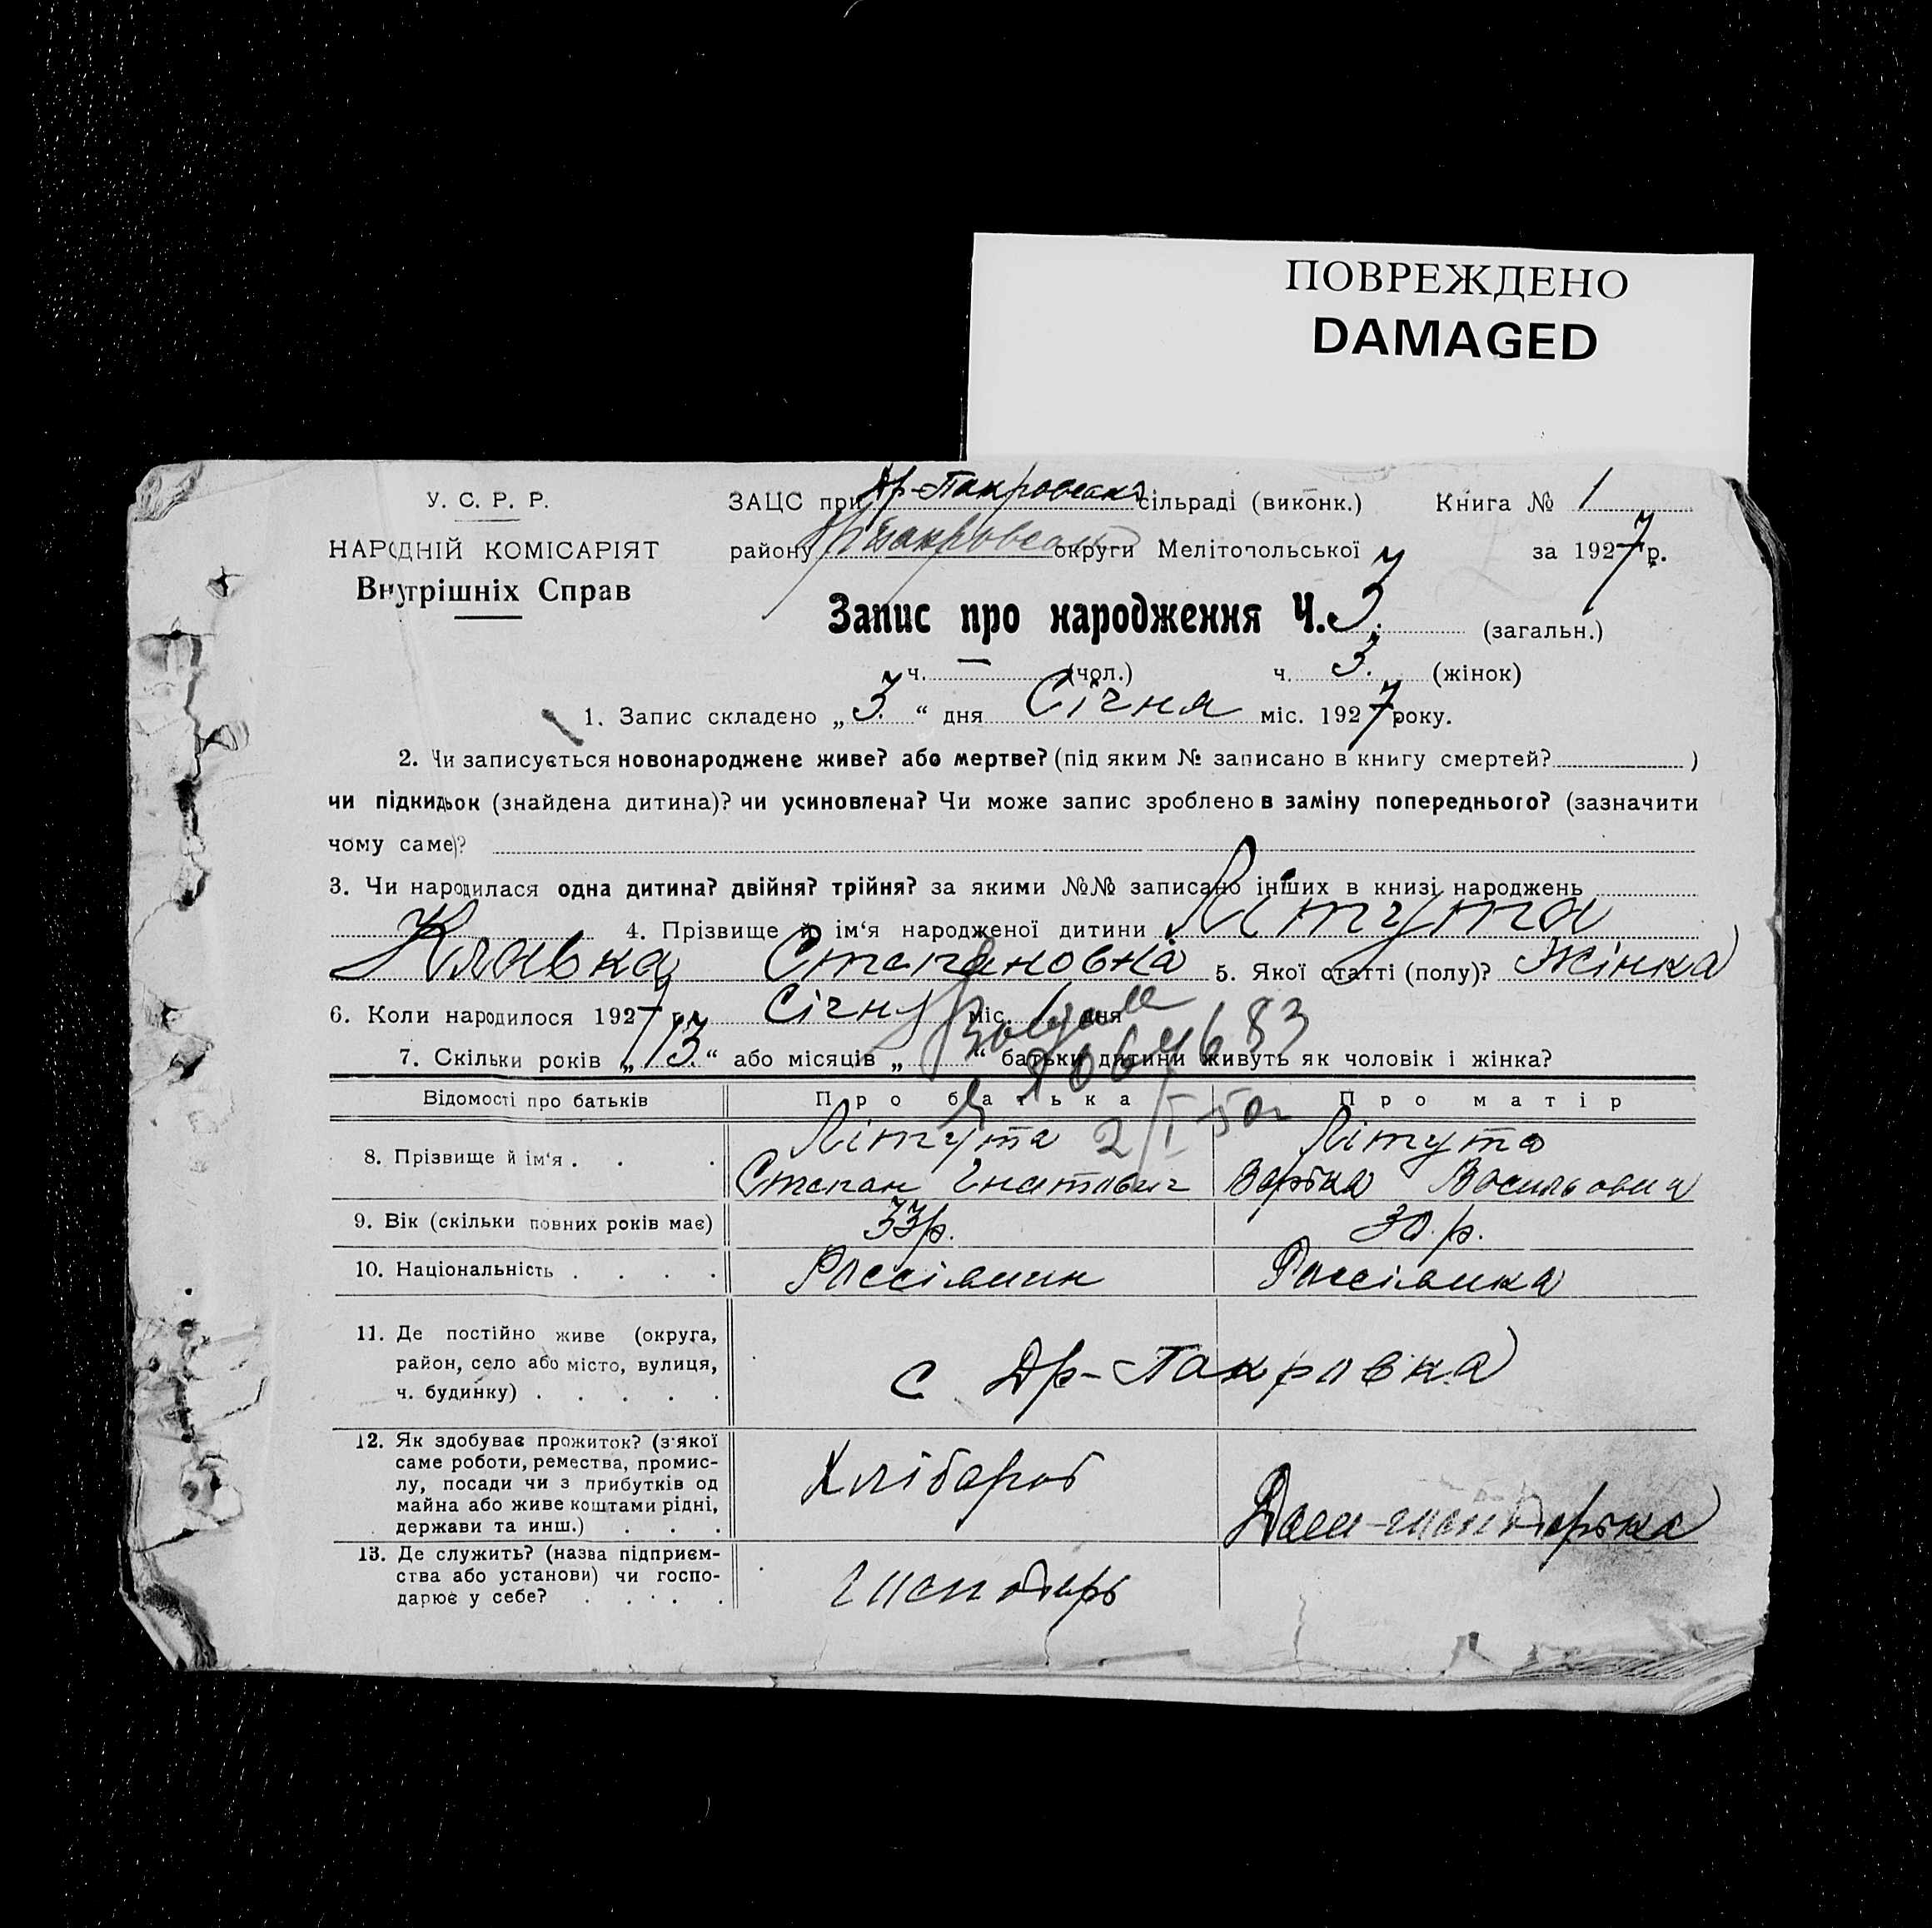 ПОВРЕЖДЕНО
DAMAGED
У. С. Р. Р.
НАРОДНІЙ КОМІСАРІЯТ
Внутрішніх Справ
ЗАЦС при Др-Покровськ сільраді (виконк.) Книга № 1
району округи Мелітопольської за 1927 р.
Запис про народження Ч. 3. (загальн.)
ч. — (чол.) ч. 3. (жінок)
1. Запис складено „3.“ дня Січня міс. 1927 року.
2. Чи записується новонароджене живе? або мертве? (під яким № записано в книгу смертей? )
чи підкидьок (знайдена дитина)? чи усиновлена? Чи може запис зроблено в заміну попереднього? (зазначити
чому саме)?
3. Чи народилася одна дитина? двійня? трійня? за якими №№ записано інших в книзі народжень
4. Прізвище й ім‘я народженої дитини Літута
Клавка Степановна 5. Якої статті (полу)? Жінка
6. Коли народилося 1927 р. Січня міс. 1 дня
7. Скільки років „13.“ або місяців „ “ батьки дитини живуть як чоловік і жінка?
2/I 50г
Відомості про батьків Про батька Про матір
8. Прізвище й ім‘я . . . Літута Літута
Степан Гнатович Варька Васильовна
9. Вік (скільки повних років має) 33 р. 30. р.
10. Національність . . . . Россіянин Россіянка
11. Де постійно живе (округа,
район, село або місто, вулиця,
ч. будинку) . . . . .
с Др-Покровка
12. Як здобуває прожиток? (з якої
саме роботи, ремества, промис-
лу, посади чи з прибутків од
майна або живе коштами рідні,
держави та инш.) . . .
Хлібороб
Дом-господарька
13. Де служить? (назва підприєм-
ства або установи) чи госпо-
дарює у себе? . . . . .
господарь